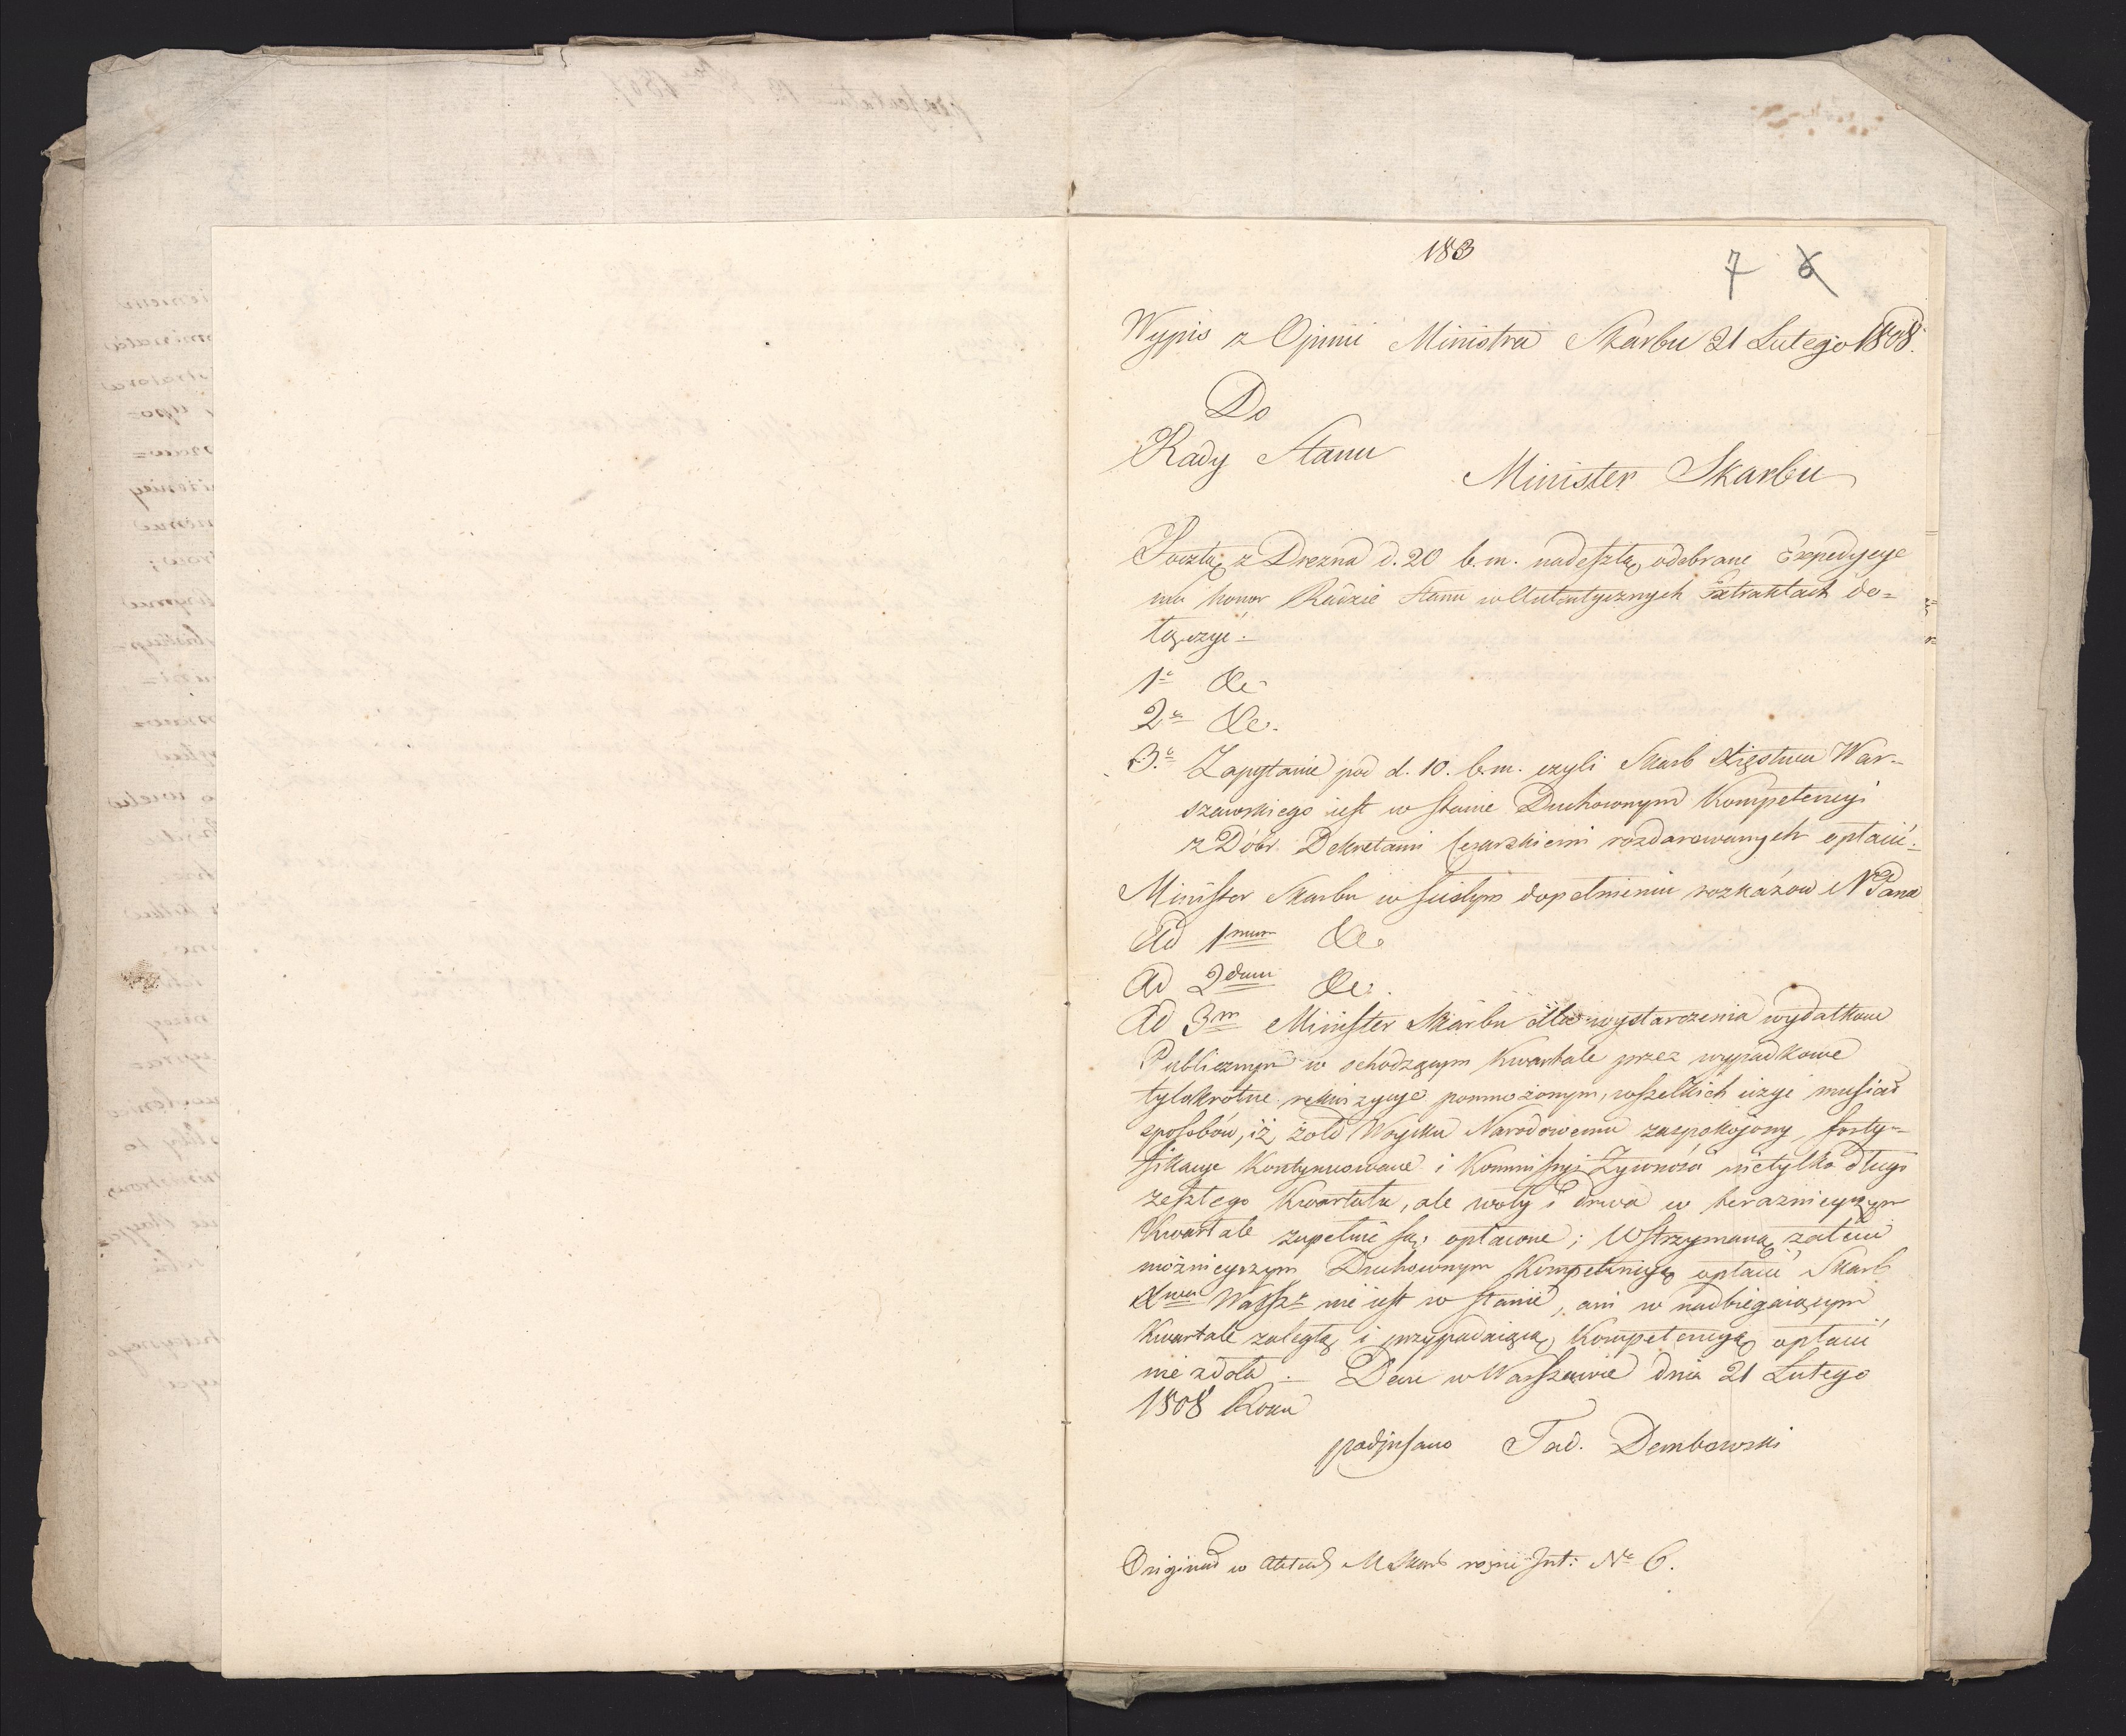 183
7 6
Wypis z Opinii Ministra Skarbu 21 Lutego 1808.
Do
Rady Stanu
Minister Skarbu
Pocztą z Drezna d. 20 b. m. nadeszłą odebrane Expedycye
ma honor Radzie Stanu w Autentycznych Extraktach do=
łączyć.
1e &c
2e &c.
3e Zapytanie pod d. 10. b. m. czyli Skarb Xięstwa War-
szawskiego iest w stanie Duchownym Kompetencyi
z Dóbr Dekretami Cezarskiemi rozdarowanych opłacić.
Minister Skarbu w ścisłym dopełnieniu rozkazów N Pana
Ad 1mum &c
Ad 2dum &c.
Ad 3m Minister Skarbu dla wystarczenia wydatkom
Publicznym w schodzącym Kwartale przez wypadkowe
tylokrotne rekwizycye pomnożonym, wszelkich użyć musiał
sposobów, iż żołd Woysku Narodowemu zaspokojony, forty-
fikacye kontynuowane i Kommissyi Żywności nietylko długi
zeszłego Kwartału, ale woły i drwa w teraznieyszym
Kwartale zupełnie są opłacone; Wstrzymaną zatem
możnieyszym Duchownym Kompetencyą opłacić Skarb
Xwa Warsz: nie iest w stanie, ani w nadbiegaiącym
Kwartale zaległą i przypadaiącą Kompetencyą opłacić
nie zdoła. Dan w Warszawie dnia 21 Lutego
1808 Roku
podpisano Tad. Dembowski
Originał w Aktach M Skarb Int: No 6.